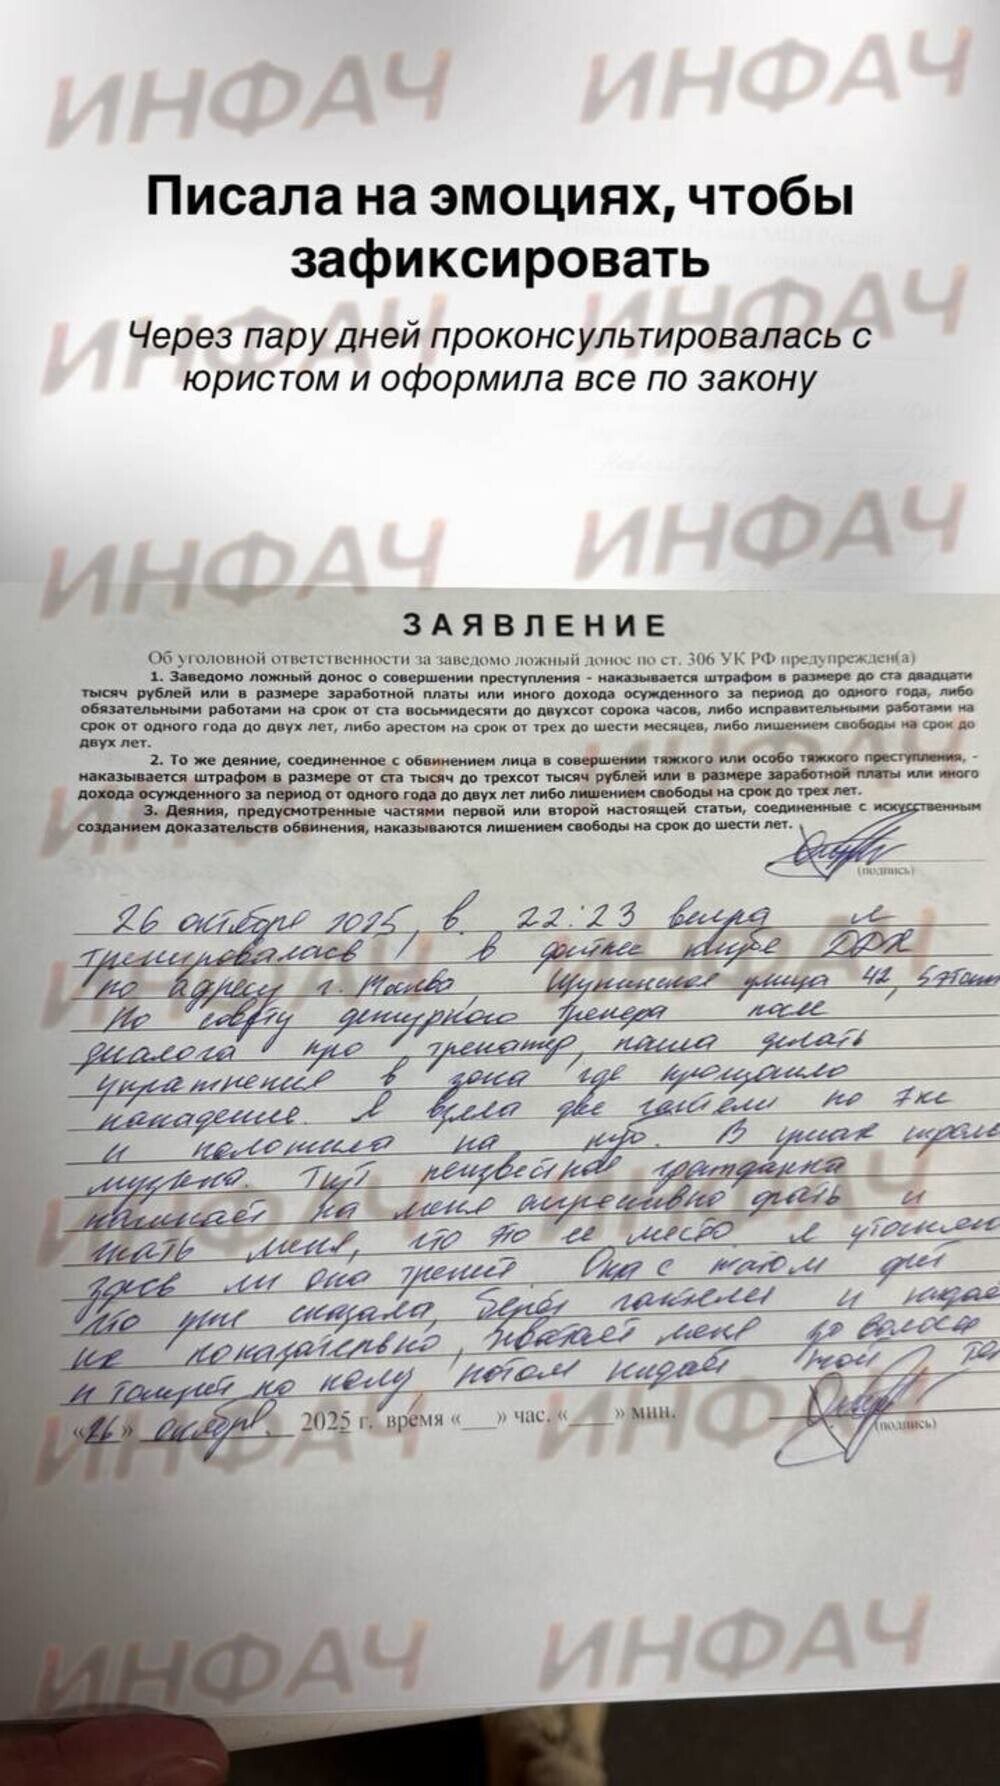 ИНФАЧ ИНФАЧ
Писала на эмоциях, чтобы
зафиксировать
ИНФАЧ ИНФАЧ
Через пару дней проконсультировалась с
юристом и оформила все по закону
ИНФАЧ ИНФАЧ
ЗАЯВЛЕНИЕ
Об уголовной ответственности за заведомо ложный донос по ст. 306 УК РФ предупрежден(а)
1. Заведомо ложный донос о совершении преступления - наказывается штрафом в размере до ста двадцати
тысяч рублей или в размере заработной платы или иного дохода осужденного за период до одного года, либо
обязательными работами на срок от ста восьмидесяти до двухсот сорока часов, либо исправительными работами на
срок от одного года до двух лет, либо арестом на срок от трех до шести месяцев, либо лишением свободы на срок до
двух лет.
2. То же деяние, соединенное с обвинением лица в совершении тяжкого или особо тяжкого преступления, -
наказывается штрафом в размере от ста тысяч до трехсот тысяч рублей или в размере заработной платы или иного
дохода осужденного за период от одного года до двух лет либо лишением свободы на срок до трех лет.
3. Деяния, предусмотренные частями первой или второй настоящей статьи, соединенные с искусственным
созданием доказательств обвинения, наказываются лишением свободы на срок до шести лет.
(подпись)
26 октября 2025, в 22:23 вечера я
тренировалась в фитнес клубе ДДХ
по адресу г. Москва, Щукинская улица 42, 5 этаж
По совету дежурного тренера после
диалога про тренажер, пошла делать
упражнения в зона где произошло
нападение. Я взяла две гантели по 7кг
и положила на пол. В ушах играла
музыка. Тут неизвестная гражданка
начинает на меня агрессивно орать и
гнать меня, что это ее место. Я уточняю
здесь ли она тренит. Она с матом
что уже сказала, берёт гантели и кидает
их показательно, хватает меня за волосы
и по полу, потом кидает мой
«26» октября 2025 г. время «___» час. «___» мин.
(подпись)
ИНФАЧ ИНФАЧ